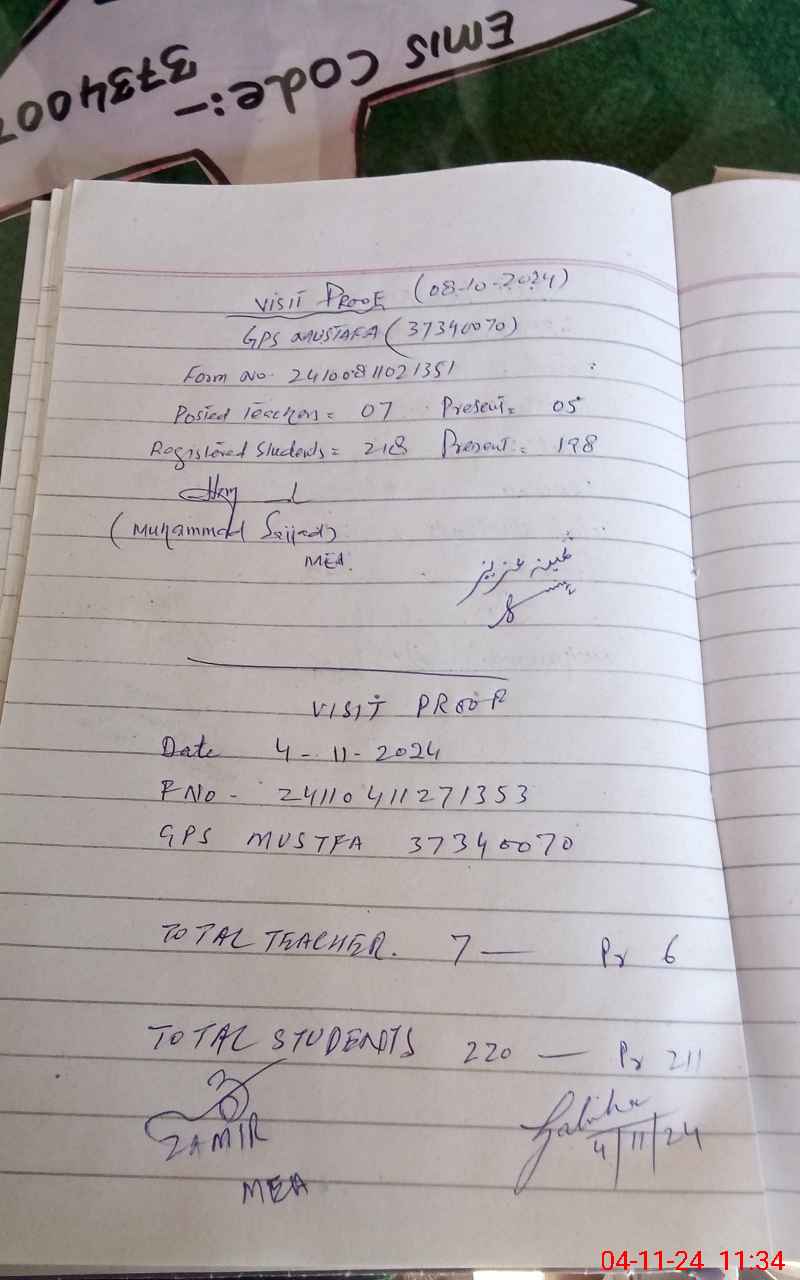 EMIS Code:- 3734007
VISIT PROOF (08-10-2024)
GPS MUSTAFA (37340070)
Form No. 24100811021351
Posted Teachers = 07 Present = 05
Registered Students = 218 Present = 198
(Muhammad Sajjad)
MEA
عزیز
VISIT PROOF
Date 4-11-2024
F No - 24110411271353
GPS MUSTFA 37340070
TOTAL TEACHER. 7 — Pr 6
TOTAL STUDENTS 220 — Pr 211
ZAMIR
4/11/24
MEA
04-11-24 11:34